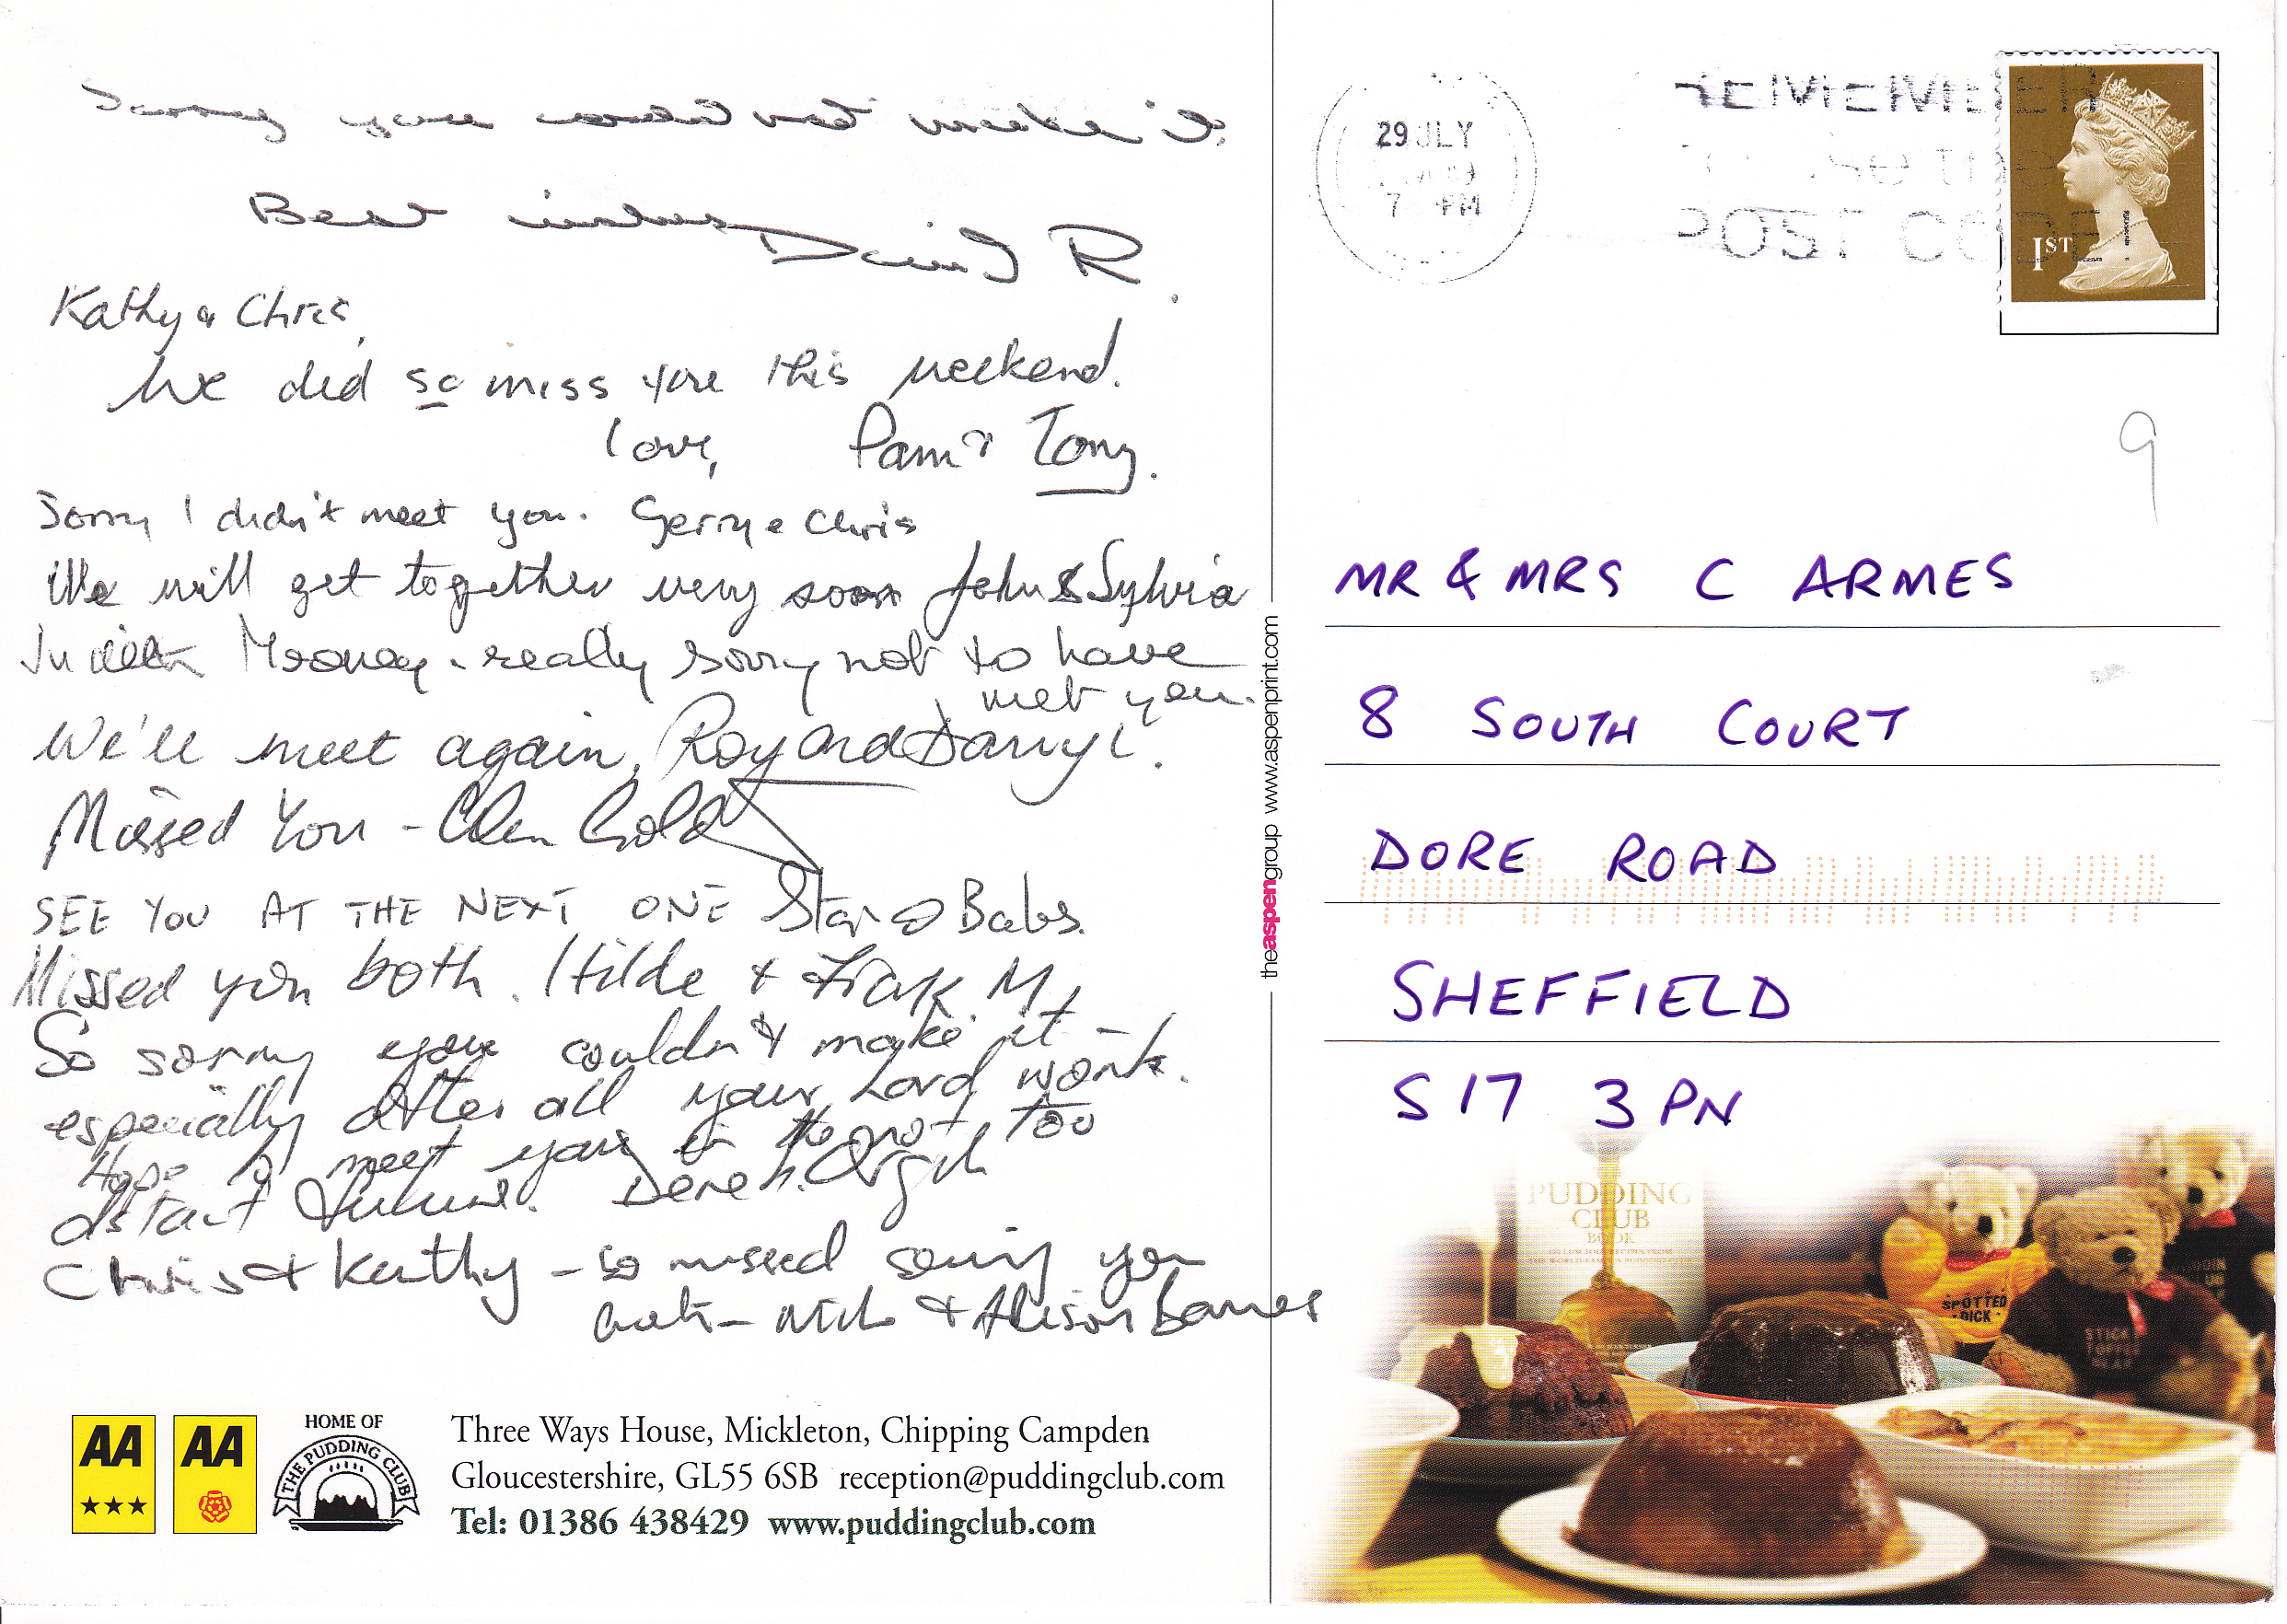 Sorry you could not make it.
Best wishes David R.
Kathy & Chris,
We did so miss you this weekend.
love, Pam & Tony.
Sorry I didn't meet you. Gerry & Chris
We will get together very soon John & Sylvia
Judith Mooney - really sorry not to have
met you.
We'll meet again, Roy and Darryl.
Missed You - Glen Gold
SEE YOU AT THE NEXT ONE Stan & Babs.
Missed you both. Hilde & Frank M.
So sorry you couldn't make it -
especially after all your hard work.
Hope to meet you in the not too
distant future. Derek
Chris & Kathy - so missed seeing you
both - Nick & Alison Barnes
AA
★★★
AA
HOME OF
THE PUDDING CLUB
Three Ways House, Mickleton, Chipping Campden
Gloucestershire, GL55 6SB reception@puddingclub.com
Tel: 01386 438429 www.puddingclub.com
theaspengroup www.aspenprint.com
29 JLY
7 PM
REMEMBER
use the
POST CODE
1ST
9
MR & MRS C ARMES
8 SOUTH COURT
DORE ROAD
SHEFFIELD
S17 3PN
PUDDING
CLUB
BOOK
SPOTTED
DICK
STICKY
TOFFEE